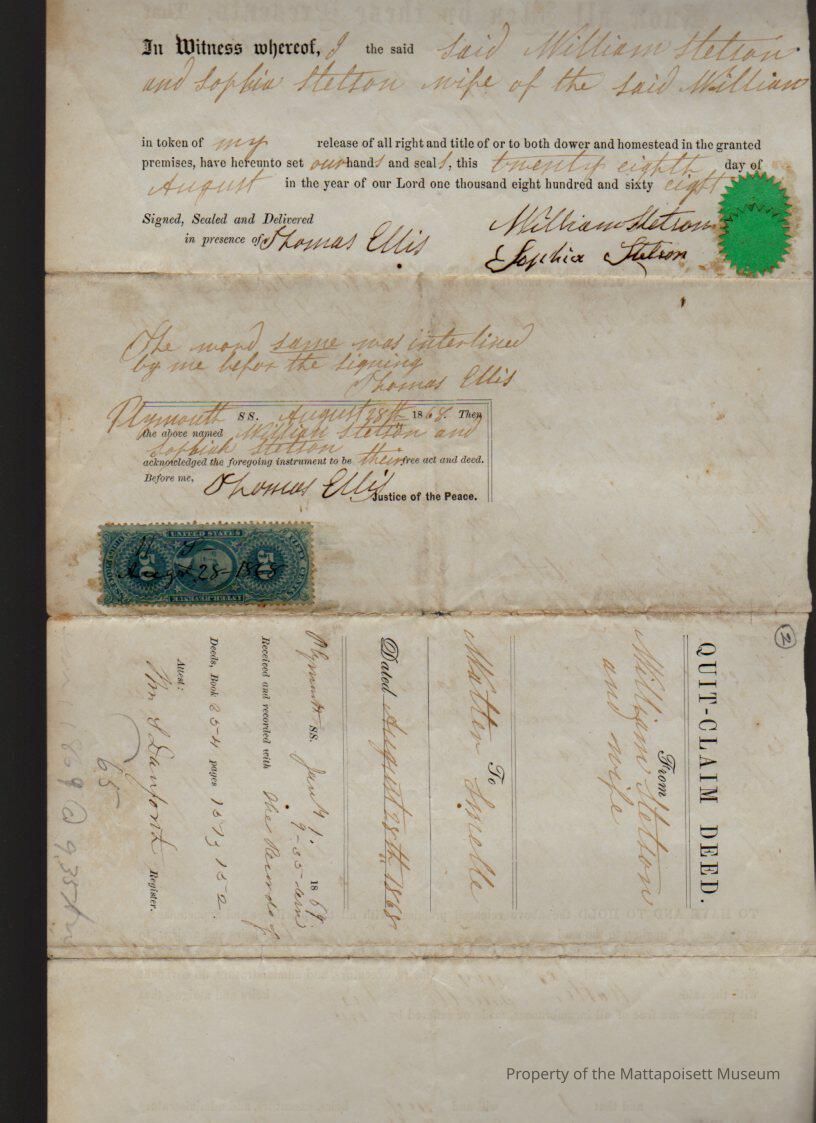 In Witness whereof, I the said said William Stetson
and Sophia Stetson wife of the said William
in token of my release of all right and title of or to both dower and homestead in the granted
premises, have hereunto set our hands and seals, this twenty eighth day of
August in the year of our Lord one thousand eight hundred and sixty eight
Signed, Sealed and Delivered
in presence of Thomas Ellis
William Stetson
Sophia Stetson
The word same was interlined
by me befor the signing
Thomas Ellis
Plymouth SS. August 28th 1868. Then
the above named William Stetson and
Sophiah Stetson
acknowledged the foregoing instrument to be their free act and deed.
Before me, Thomas Ellis
Justice of the Peace.
UNITED STATES
FIFTY CENTS
50 50
INTER. REVENUE
W S
Augt 28 1868
2
QUIT-CLAIM DEED.
From
William Stetson
and wife
To
Dated August 28th 1868
Plymouth SS. Jany 1. 1869.
9-35 am
Received and recorded with the Records of
Deeds, Book 254 pages
Attest:
Wm S Danforth Register.
65
1869 @ 9.35
Property of the Mattapoisett Museum